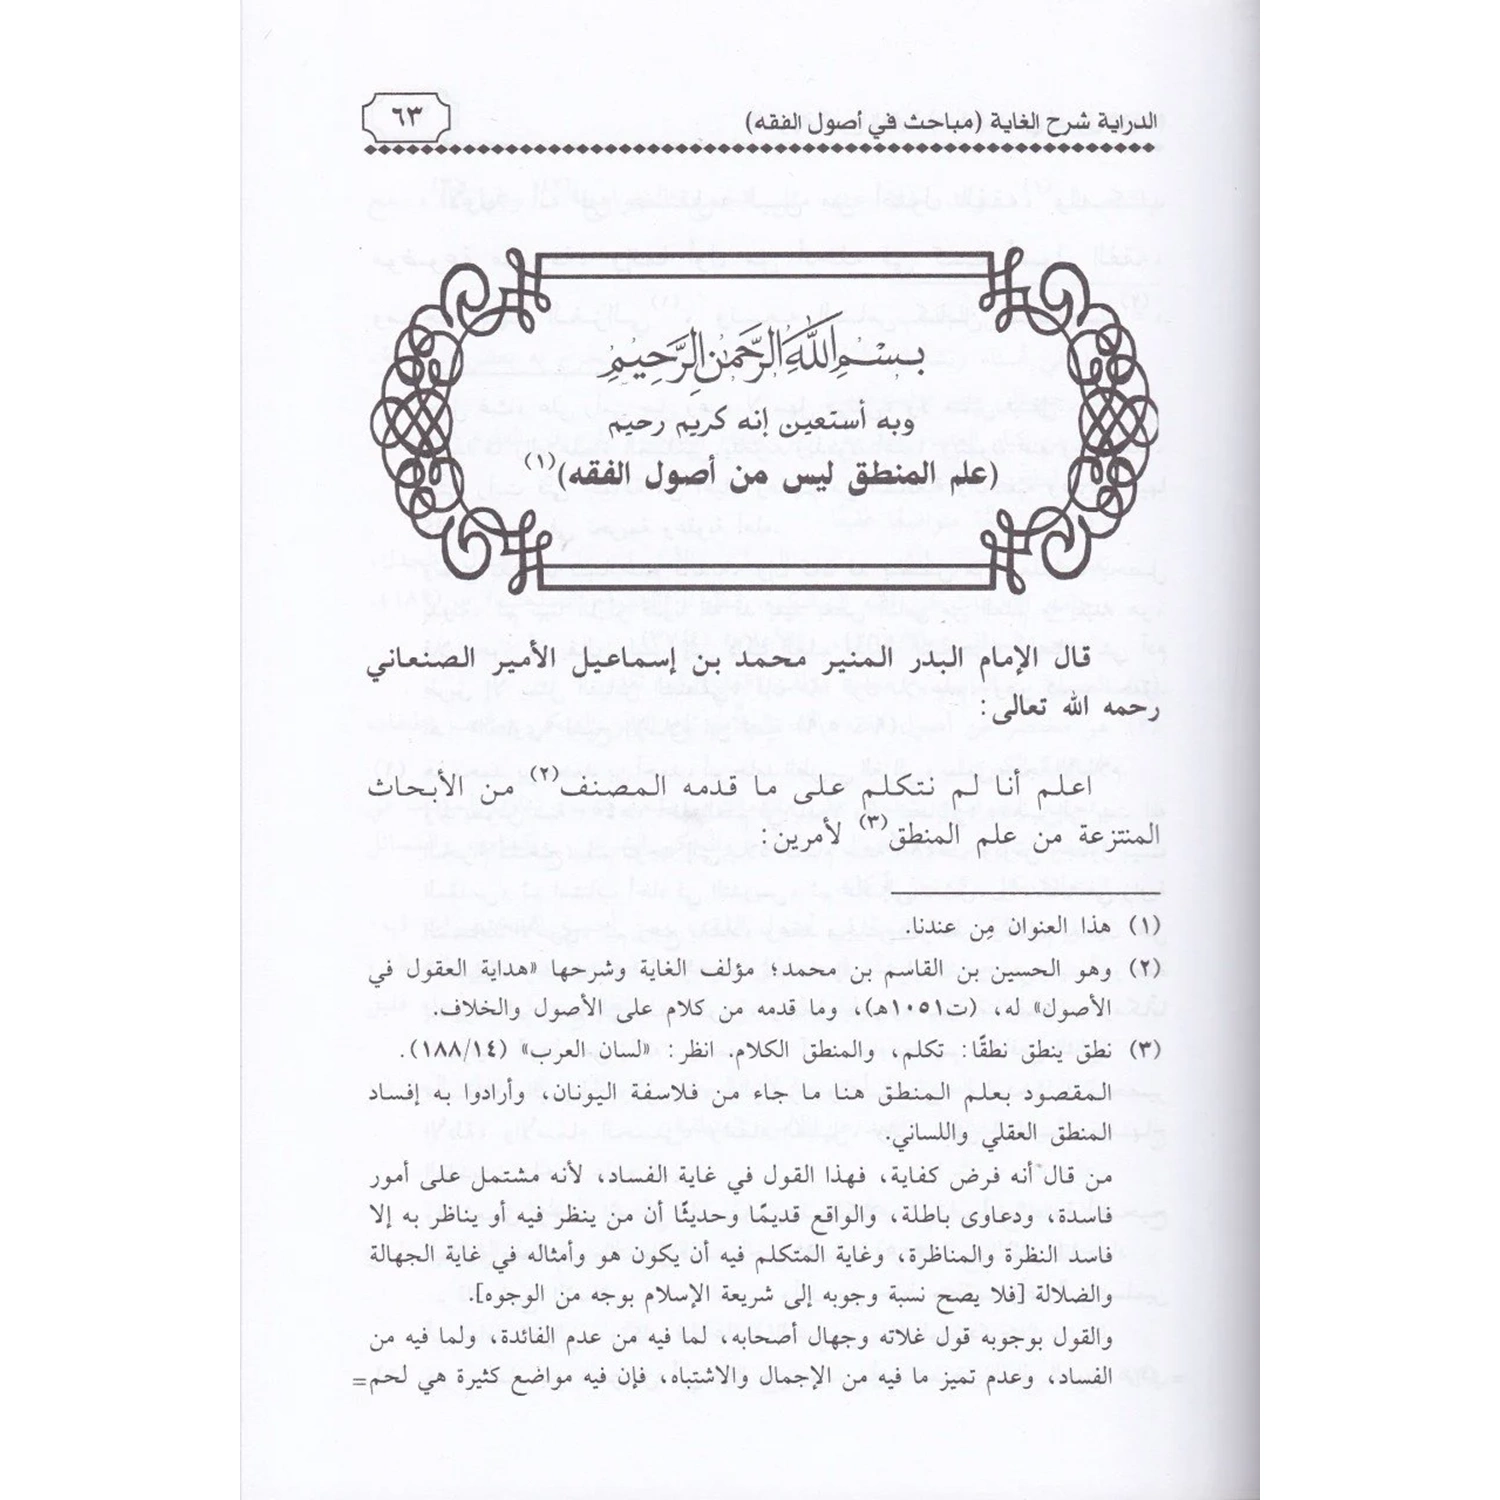 الدراية شرح الغاية (مباحث في أصول الفقه)
٦٣
بسم الله الرحمن الرحيم
وبه أستعين إنه كريم رحيم
(علم المنطق ليس من أصول الفقه)(١)
قال الإمام البدر المنير محمد بن إسماعيل الأمير الصنعاني
رحمه الله تعالى:
اعلم أنا لم نتكلم على ما قدمه المصنف(٢) من الأبحاث
المنتزعة من علم المنطق(٣) لأمرين:
(١) هذا العنوان مِن عندنا.
(٢) وهو الحسين بن القاسم بن محمد؛ مؤلف الغاية وشرحها «هداية العقول في
الأصول» له، (ت١٠٥١هـ)، وما قدمه من كلام على الأصول والخلاف.
(٣) نطق ينطق نطقًا: تكلم، والمنطق الكلام. انظر: «لسان العرب» (١٨٨/١٤).
المقصود بعلم المنطق هنا ما جاء من فلاسفة اليونان، وأرادوا به إفساد
المنطق العقلي واللساني.
من قال أنه فرض كفاية، فهذا القول في غاية الفساد، لأنه مشتمل على أمور
فاسدة، ودعاوى باطلة، والواقع قديمًا وحديثًا أن من ينظر فيه أو يناظر به إلا
فاسد النظرة والمناظرة، وغاية المتكلم فيه أن يكون هو وأمثاله في غاية الجهالة
والضلالة [فلا يصح نسبة وجوبه إلى شريعة الإسلام بوجه من الوجوه].
والقول بوجوبه قول غلاته وجهال أصحابه، لما فيه من عدم الفائدة، ولما فيه من
الفساد، وعدم تميز ما فيه من الإجمال والاشتباه، فإن فيه مواضع كثيرة هي لحم=